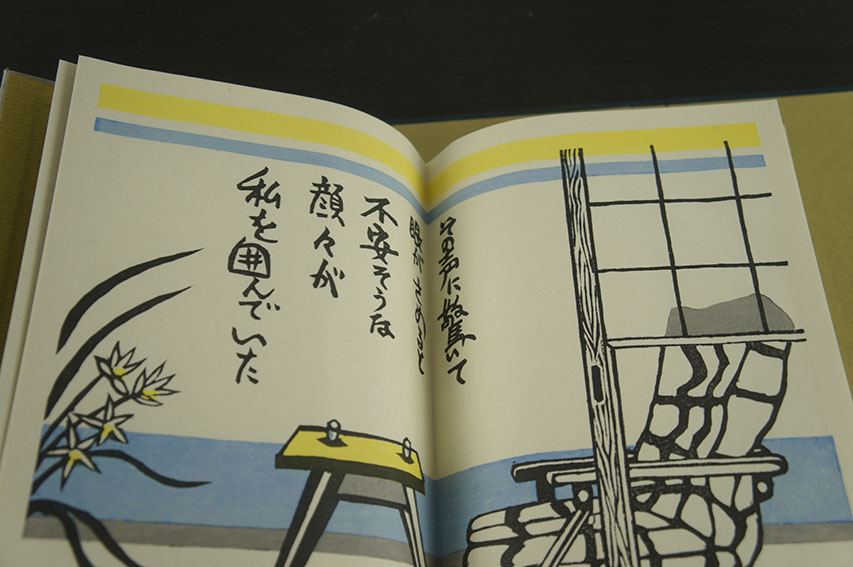 その声に驚いて
眼がさめると
不安そうな
顔々が
私を囲んでいた